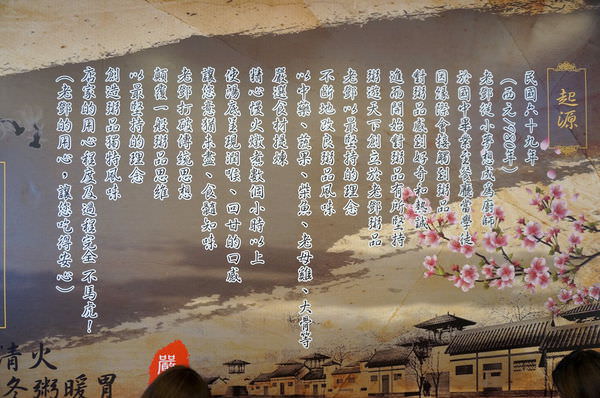 起源
民國六十九年
(西元1980年)
老鄧從小夢想成為廚師
於國中畢業至餐廳當學徒
因緣際會接觸到粥品
對粥品感到好奇和熱誠
進而開始對粥品有所堅持
粥遊天下創立於老鄧粥品
老鄧以最堅持的理念
不斷地改良粥品風味
以中藥、蔬果、柴魚、老母雞、大骨等
嚴選食材提煉
精心慢火燉煮數個小時以上
使湯底呈現潤喉、回甘的口感
讓您意猶未盡、食髓知味
老鄧打破傳統思想
顛覆一般粥品思維
以最堅持的理念
創造粥品獨特風味
店家的用心程度及過程完全不馬虎!
(老鄧的用心,讓您吃得安心)
嚴
火
情
冬粥暖胃